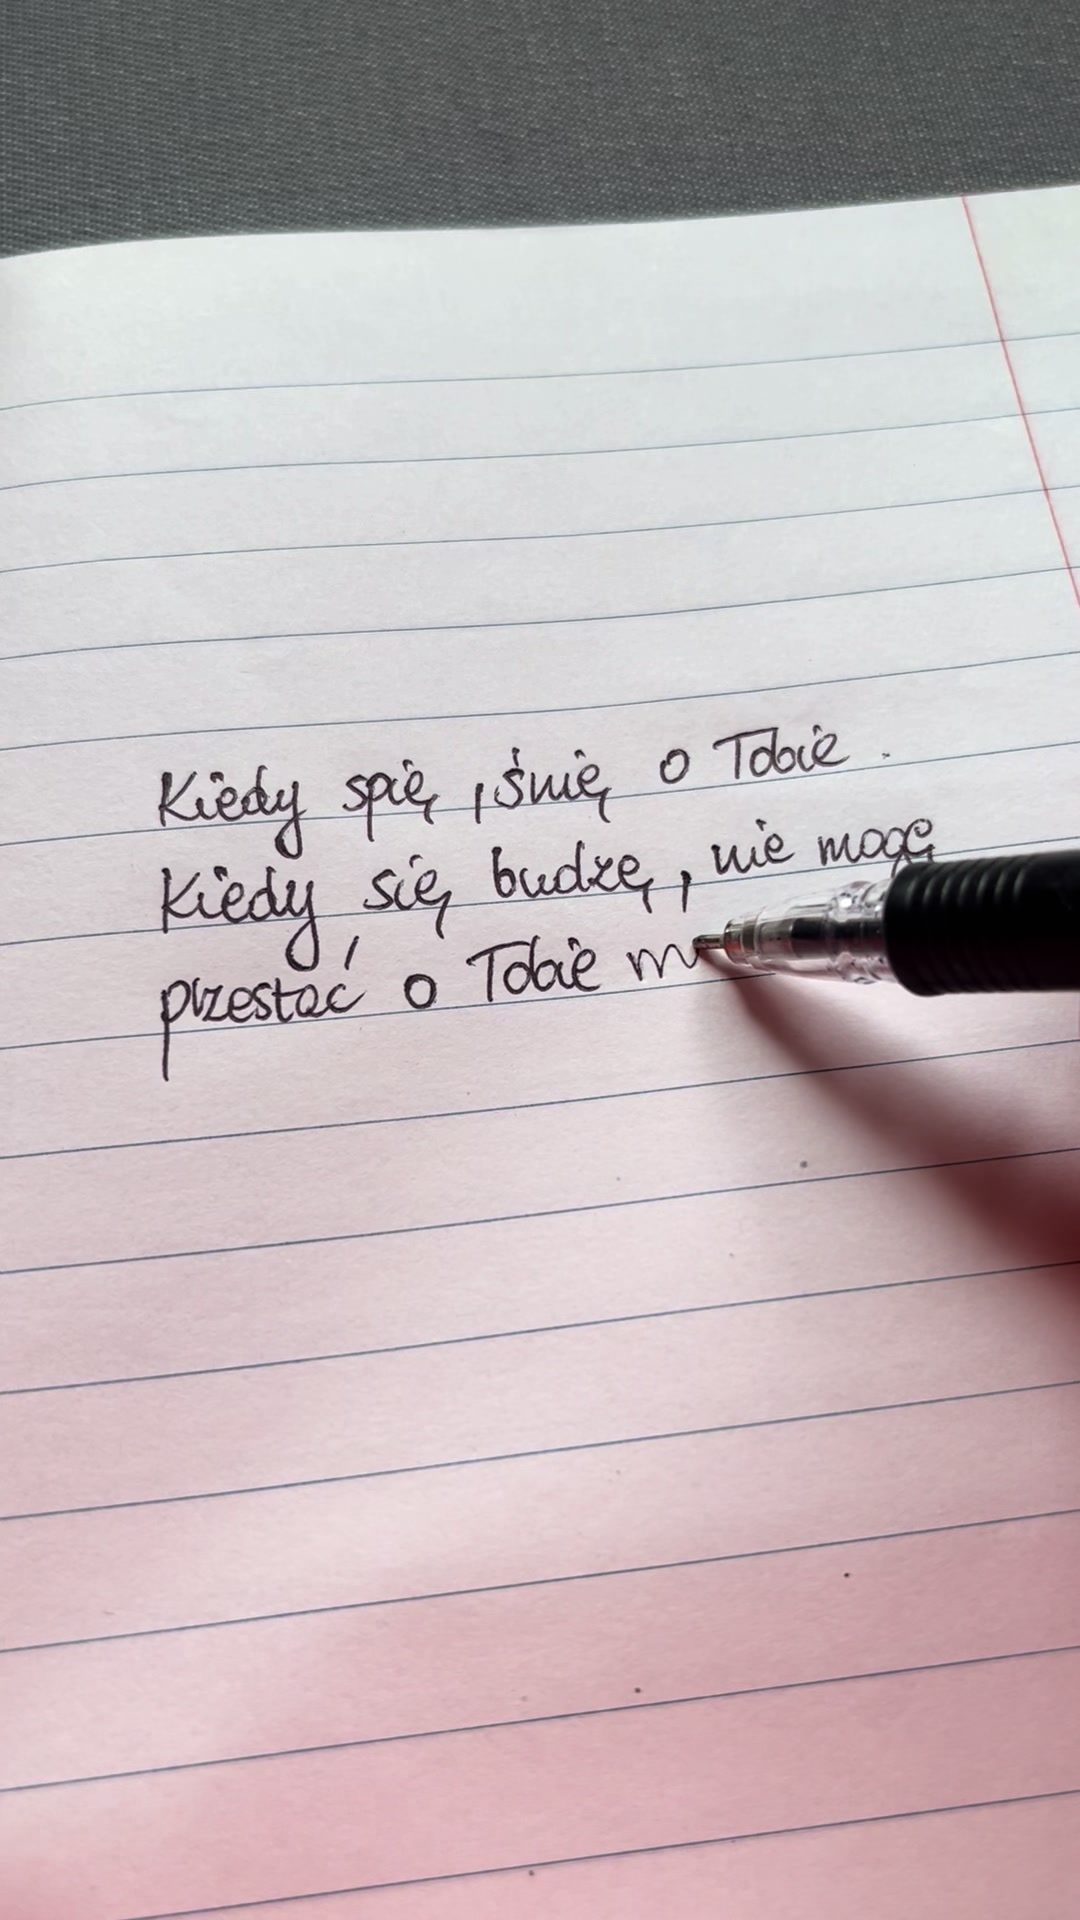 Kiedy spię, śnię o Tobie.
Kiedy się budzę, nie mogę
przestać o Tobie m